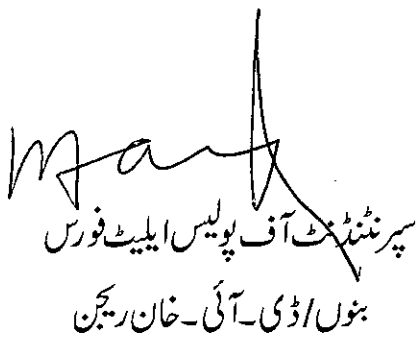 سپرنٹنڈنٹ آف پولیس ایلیٹ فورس
بنوں/ڈی۔آئی۔خان ریجن